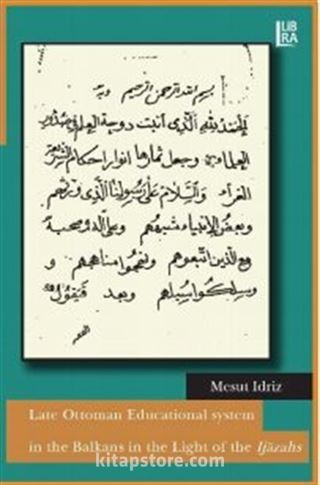 LiB
RA
بسم الله الرحمن الرحيم وبه
الحمد لله الذى انبت دوحة العلم فى صدور
العلماء وجعل ثمارها انوار احكام
الغراء والسلام على رسولنا الذى ورثهم
وبعض الانبياء مشبههم وعلى آله وصحبه
مع الذين اتبعوهم مناهجهم و
وسلكوا سبيلهم وبعد فيقول
Mesut Idriz
Late Ottoman Educational system
in the Balkans in the Light of the Ijāzahs
kitapstore.com